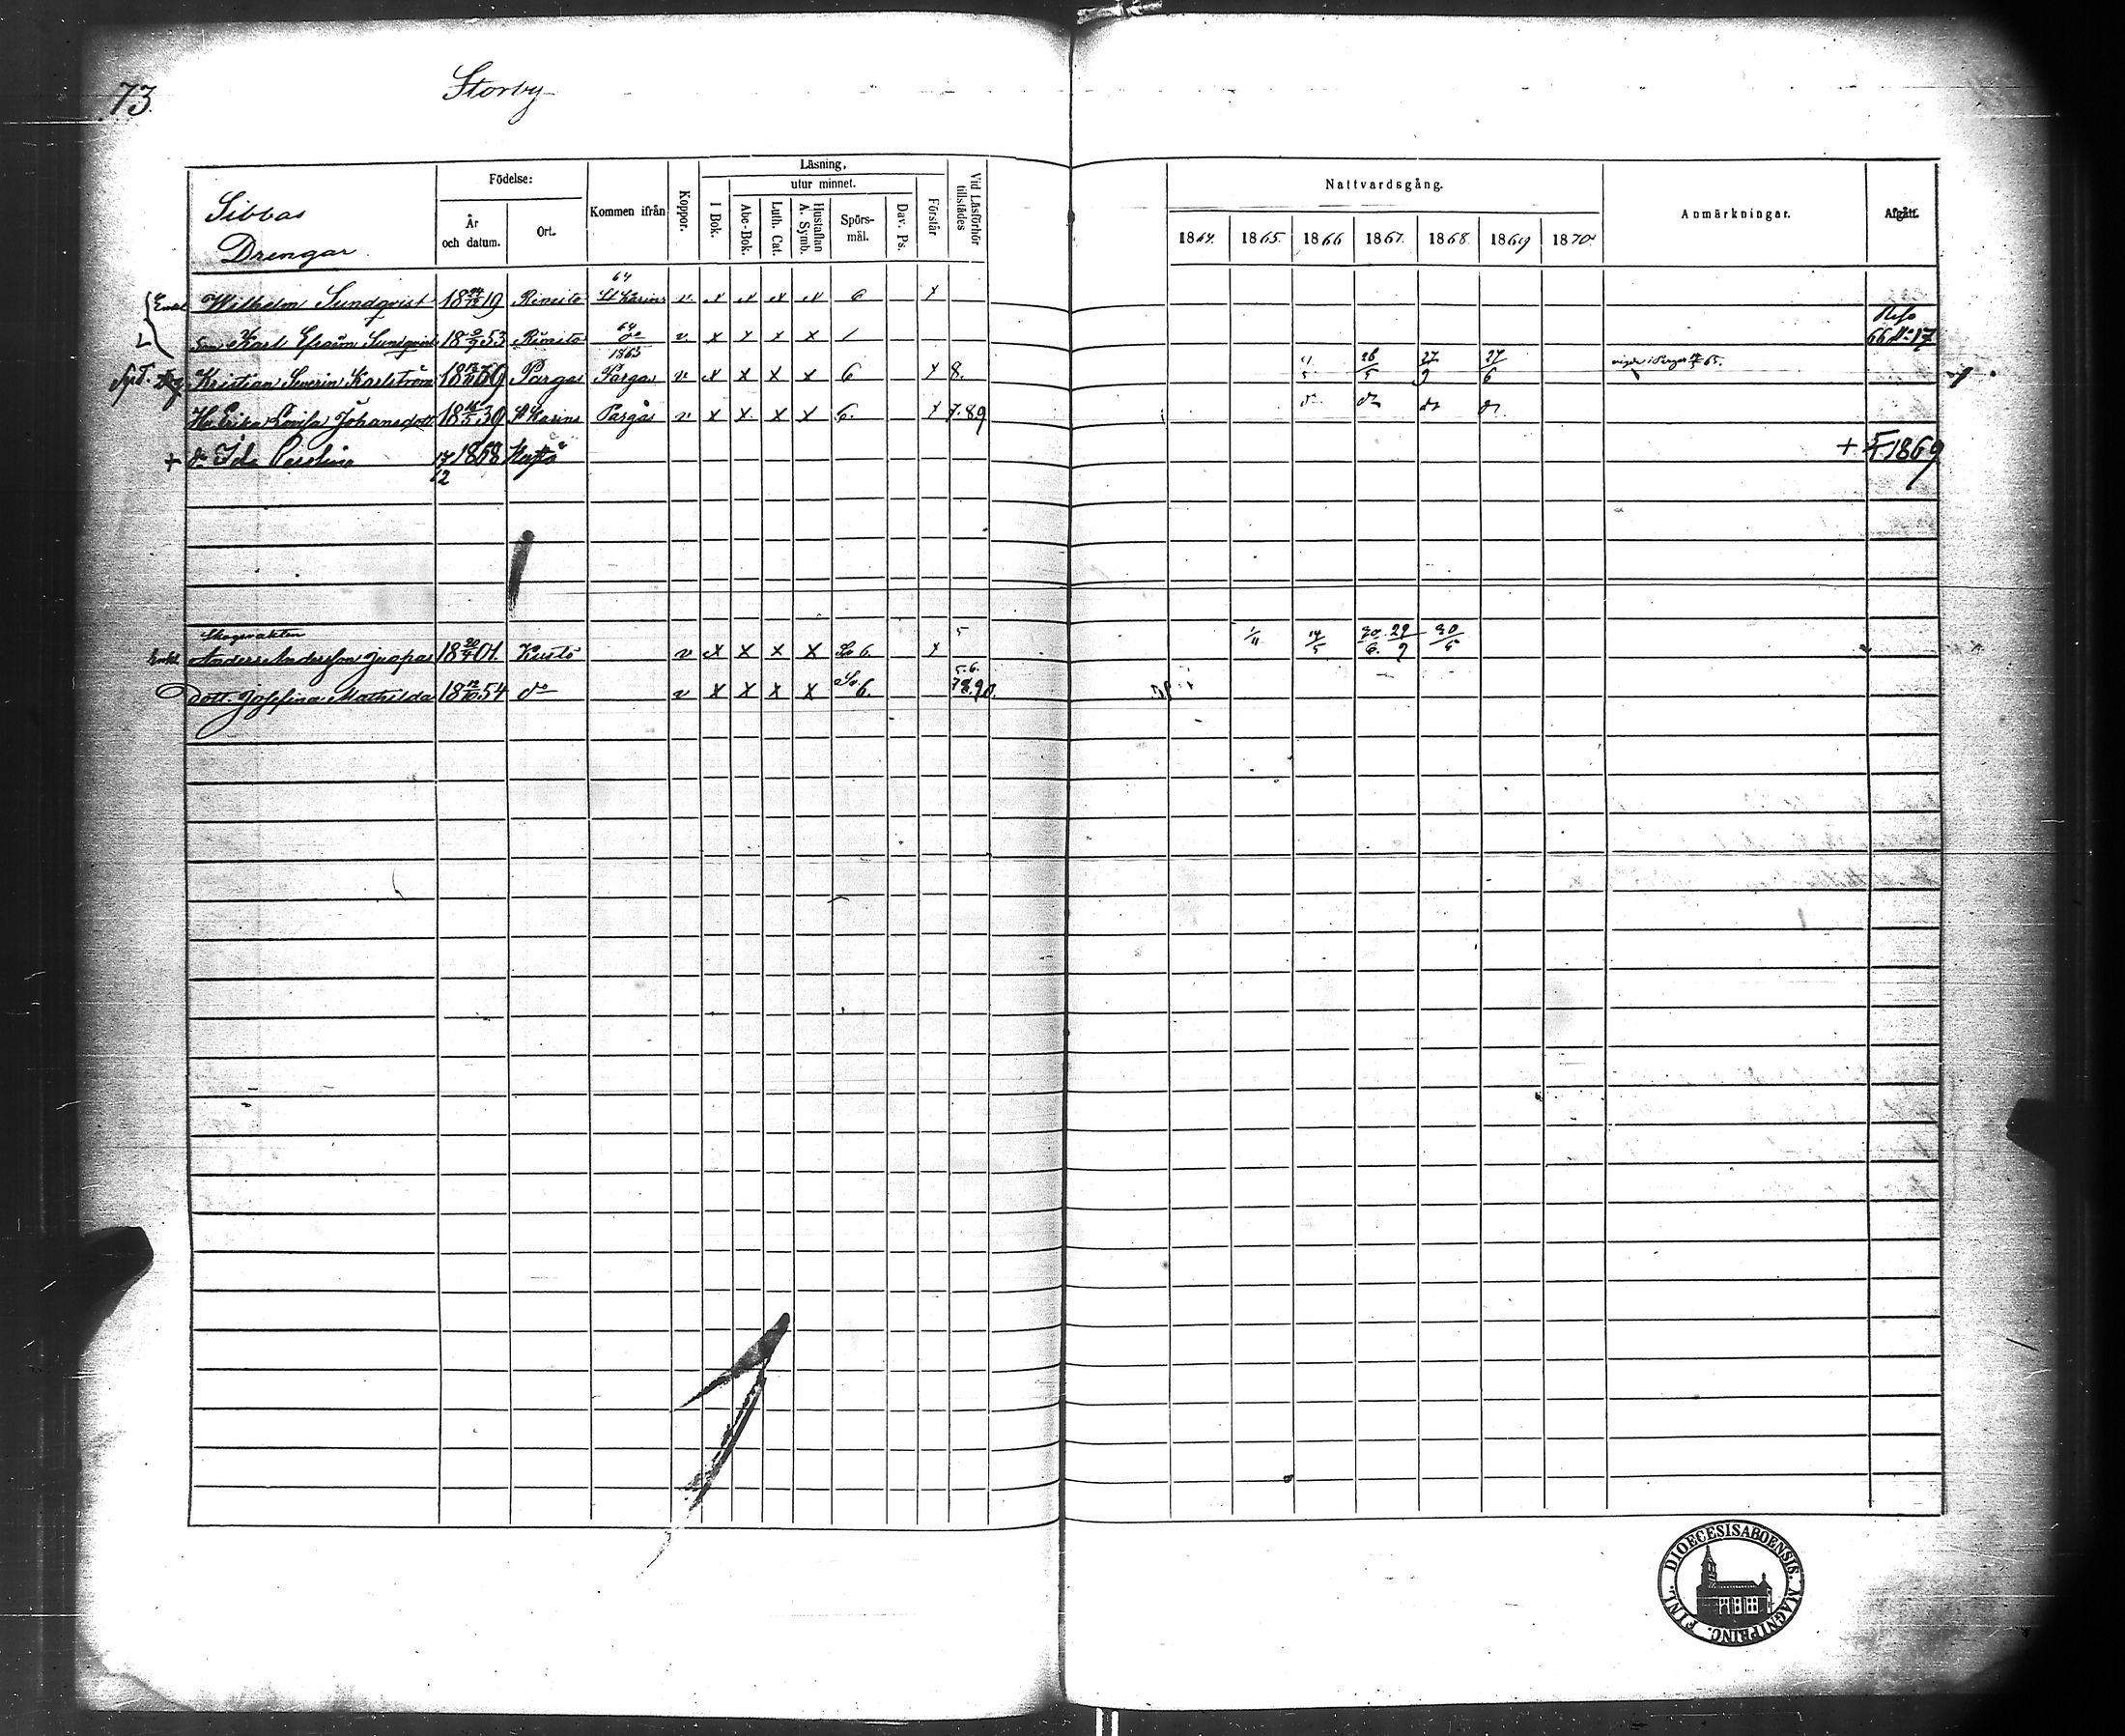 73.
Storby
Sibbas
Drengar
Födelse:
År och datum.
Ort.
Kommen ifrån
Koppor.
Läsning,
utur minnet.
I Bok.
Abc-Bok.
Luth. Cat.
Hustaflan A. Symb.
Spörsmål.
Dav. Ps.
Förstår
Vid Läsförhör tillstädes
Nattvardsgång.
1864. 1865. 1866 1867. 1868. 1869 1870
Anmärkningar.
Afgått.
Enkl. Wilhelm Sundqvist 18 24/12 19 Rimito 64 St Karins v. x x x x 6 x
Son Karl Efraim Sundqvist 18 53 Rimito 64 do v. x x x x 1 66 N:17
Kristian Severin Karlström 18 39 Pargas 1865 Pargas v. x x x x 6 x 8. 26/5 27/9 27/6 vigde i Pargas 65.
Hu Erika Lovisa Johansdott 18 39 St Karins Pargas v x x x x 6. x 7.8.9 do do do do
+ dr Ida 17/12 1868 Kustö + 1869
Enkl. Skogvakten Anders Andersson Juopas 18 01. Kustö v x x x x 6. x 5 1/11 14/5 30/6. 29/9 30/5
Dott. Josefina Mathilda 18 12/10 54 do v x x x x 6. 5.6. 7.8.9.0.
FINL. DIOECESIS ABOENSIS. MAGNI PRINC.